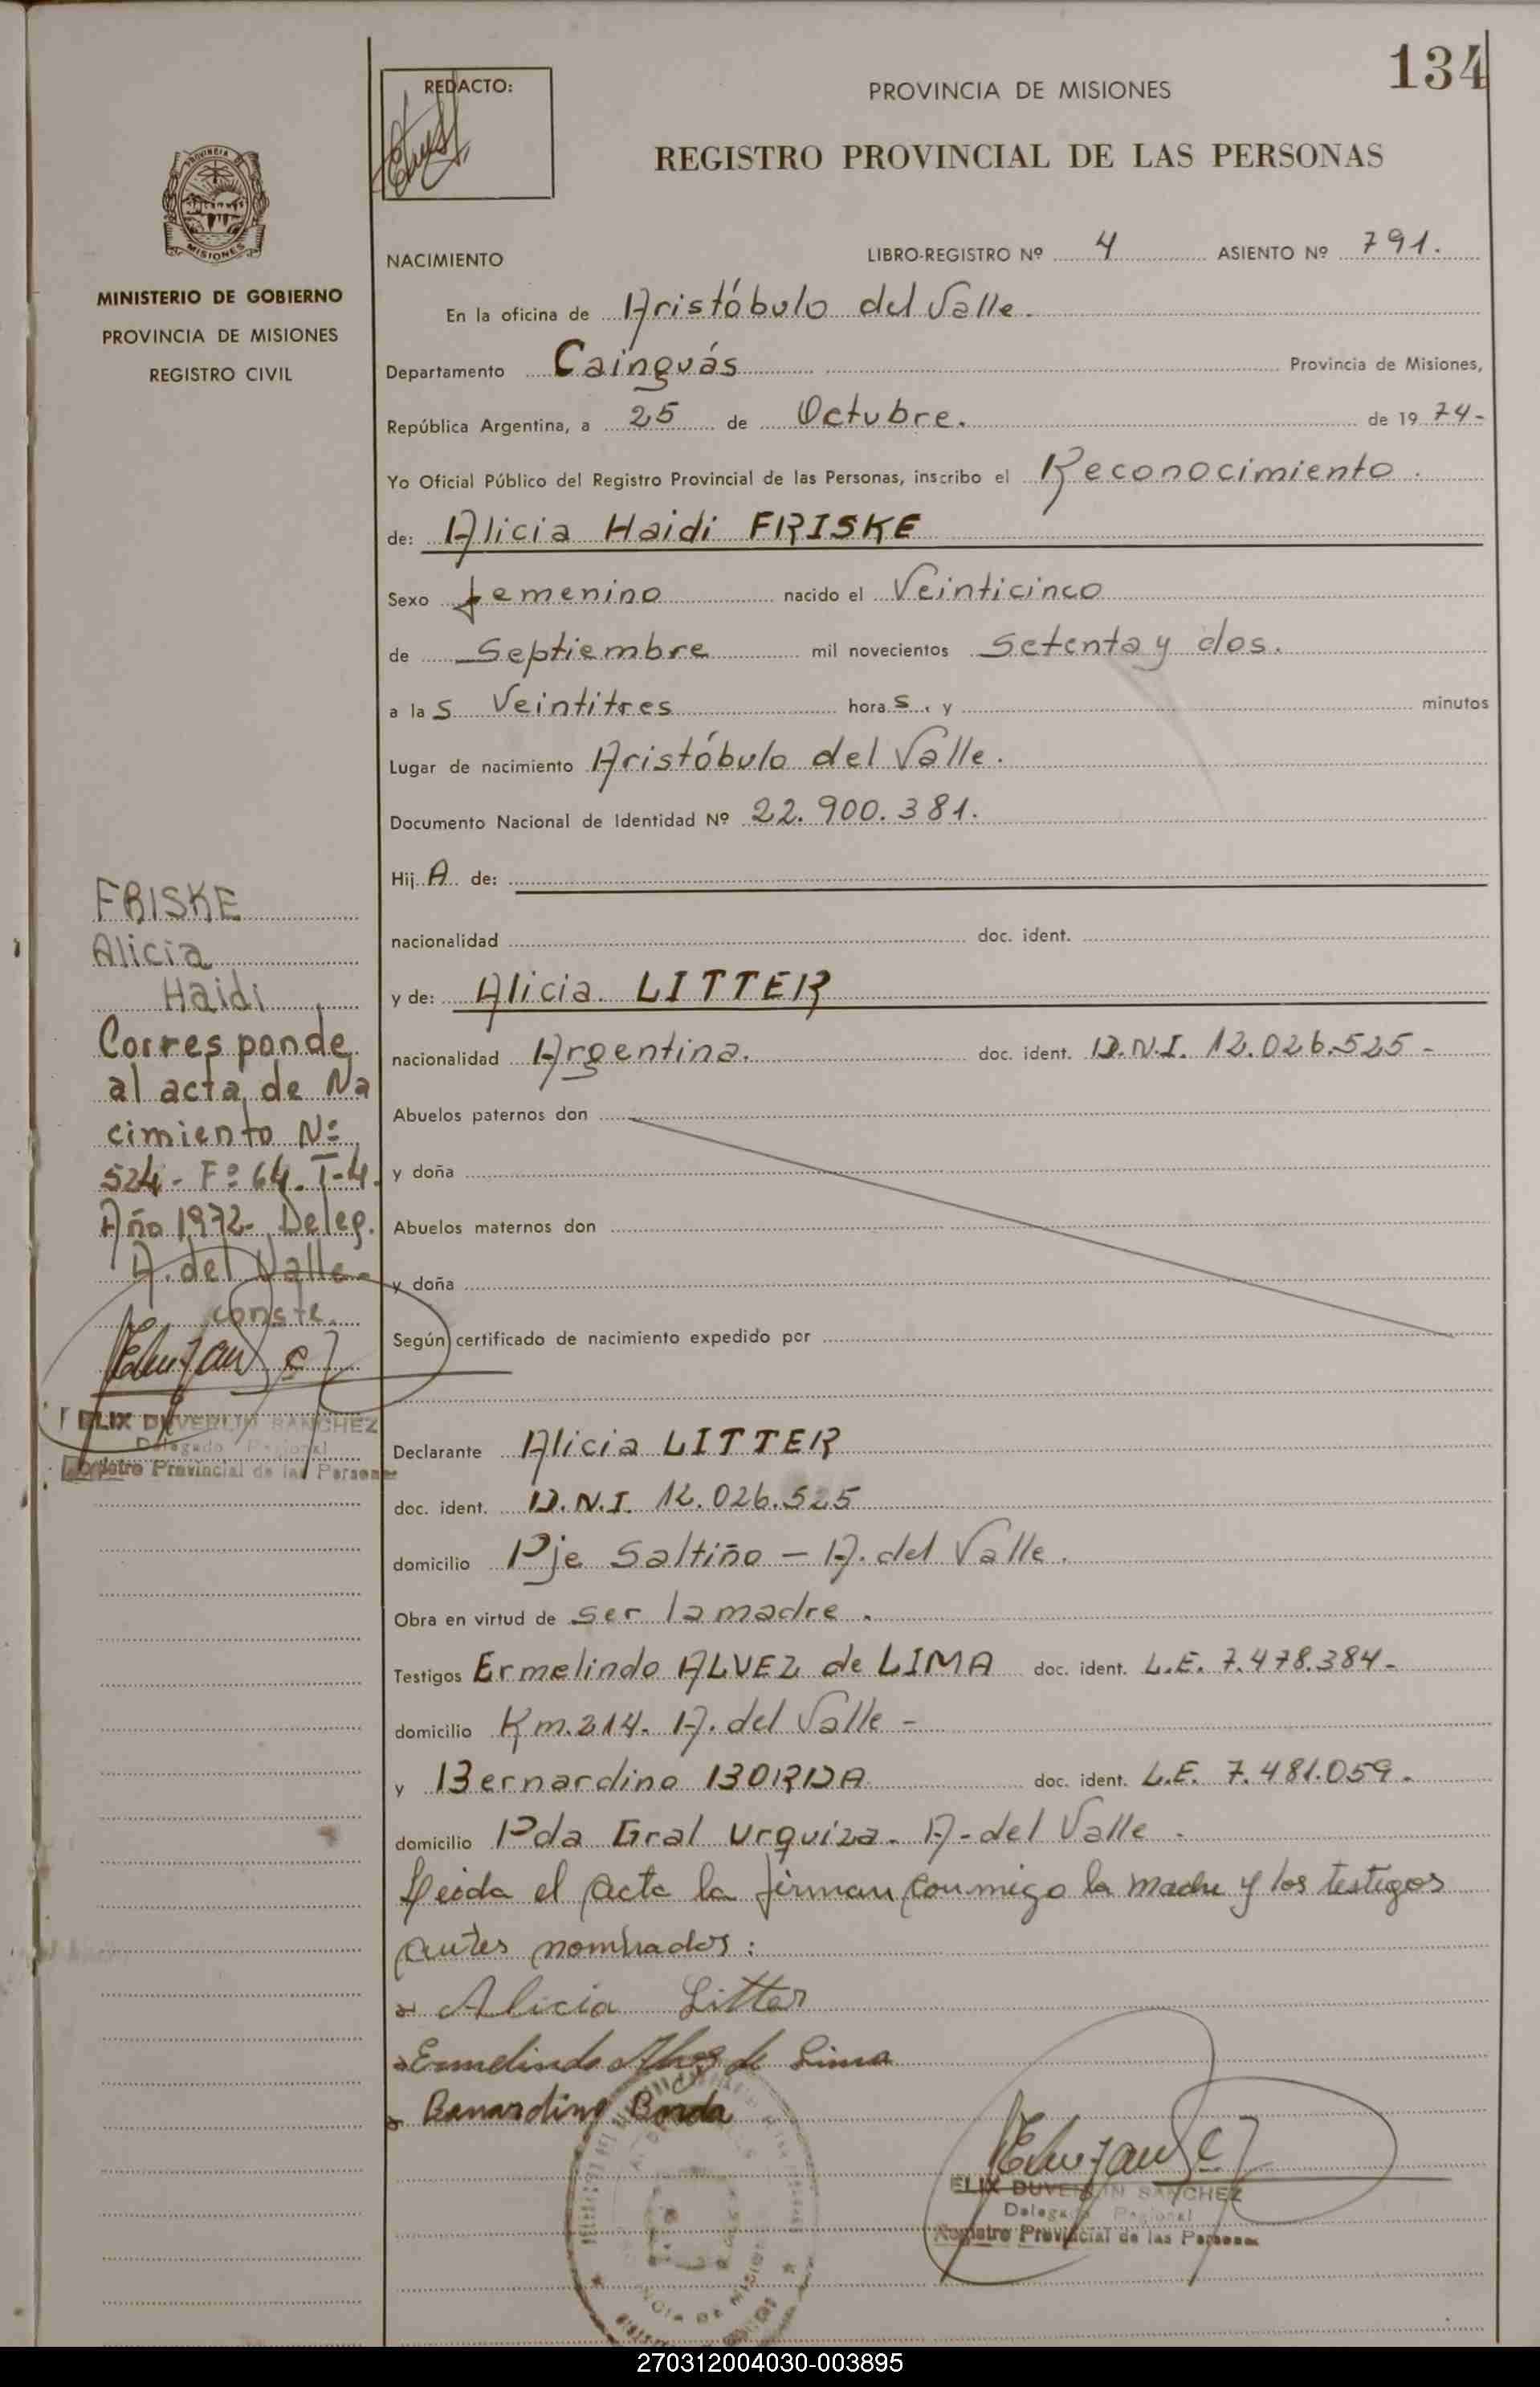 134
REDACTO:
PROVINCIA DE MISIONES
REGISTRO PROVINCIAL DE LAS PERSONAS
PROVINCIA DE
MISIONES
MINISTERIO DE GOBIERNO
PROVINCIA DE MISIONES
REGISTRO CIVIL
NACIMIENTO LIBRO-REGISTRO Nº 4 ASIENTO Nº 791.
En la oficina de Aristóbulo del Valle.
Departamento Cainguás Provincia de Misiones,
República Argentina, a 25 de Octubre. de 19 74-
Yo Oficial Público del Registro Provincial de las Personas, inscribo el Reconocimiento.
de: Alicia Haidi FRISKE
Sexo femenino nacido el Veinticinco
de Septiembre mil novecientos Setenta y dos.
a la s Veintitres hora s, y minutos
Lugar de nacimiento Aristóbulo del Valle.
Documento Nacional de Identidad Nº 22.900.381.
Hij A de:
nacionalidad doc. ident.
y de: Alicia LITTER
nacionalidad Argentina. doc. ident. D.N.I. 12.026.525-
Abuelos paternos don
y doña
Abuelos maternos don
y doña
Según certificado de nacimiento expedido por
Declarante Alicia LITTER
doc. ident. D.N.I. 12.026.525
domicilio Pje Saltiño - A. del Valle.
Obra en virtud de ser la madre.
Testigos Ermelindo ALVEZ de LIMA doc. ident. L.E. 7.478.384-
domicilio Km. 214. A. del Valle -
y Bernardino BORDA doc. ident. L.E. 7.481.059.
domicilio Pda Gral Urquiza. A. del Valle -
Leida el acta la firman conmigo la madre y los testigos
antes nombrados:
Alicia Litter
Ermelindo Alvez de Lima
Bernardino Borda
FELIX DUVERLIN SANCHEZ
Delegado Regional
Registro Provincial de las Personas
FRISKE
Alicia
Haidi
Corresponde
al acta de Na
cimiento Nº
524- Fº 64. T-4.
Año 1972- Deleg.
A. del Valle.
conste.
FELIX DUVERLIN SANCHEZ
Delegado Regional
Registro Provincial de las Personas
270312004030-003895